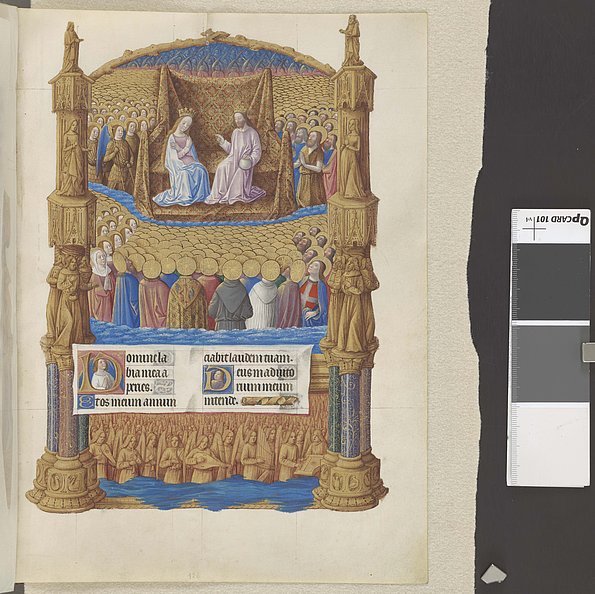 Domine la
bia mea a
peries.
Et os meum annun
ciabit laudem tuam.
Deus in adiuto
rium meum
intende.
QPCARD 101 v4